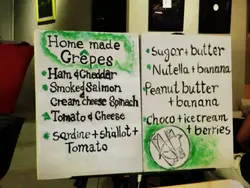 Home made
Crêpes
Ham & Cheddar
Smoked Salmon
Cream cheese Spinach
Tomato & Cheese
sardine + shallot +
Tomato
sugar + butter
Nutella + banana
Peanut butter
+ banana
Choco + icecream
+ berries